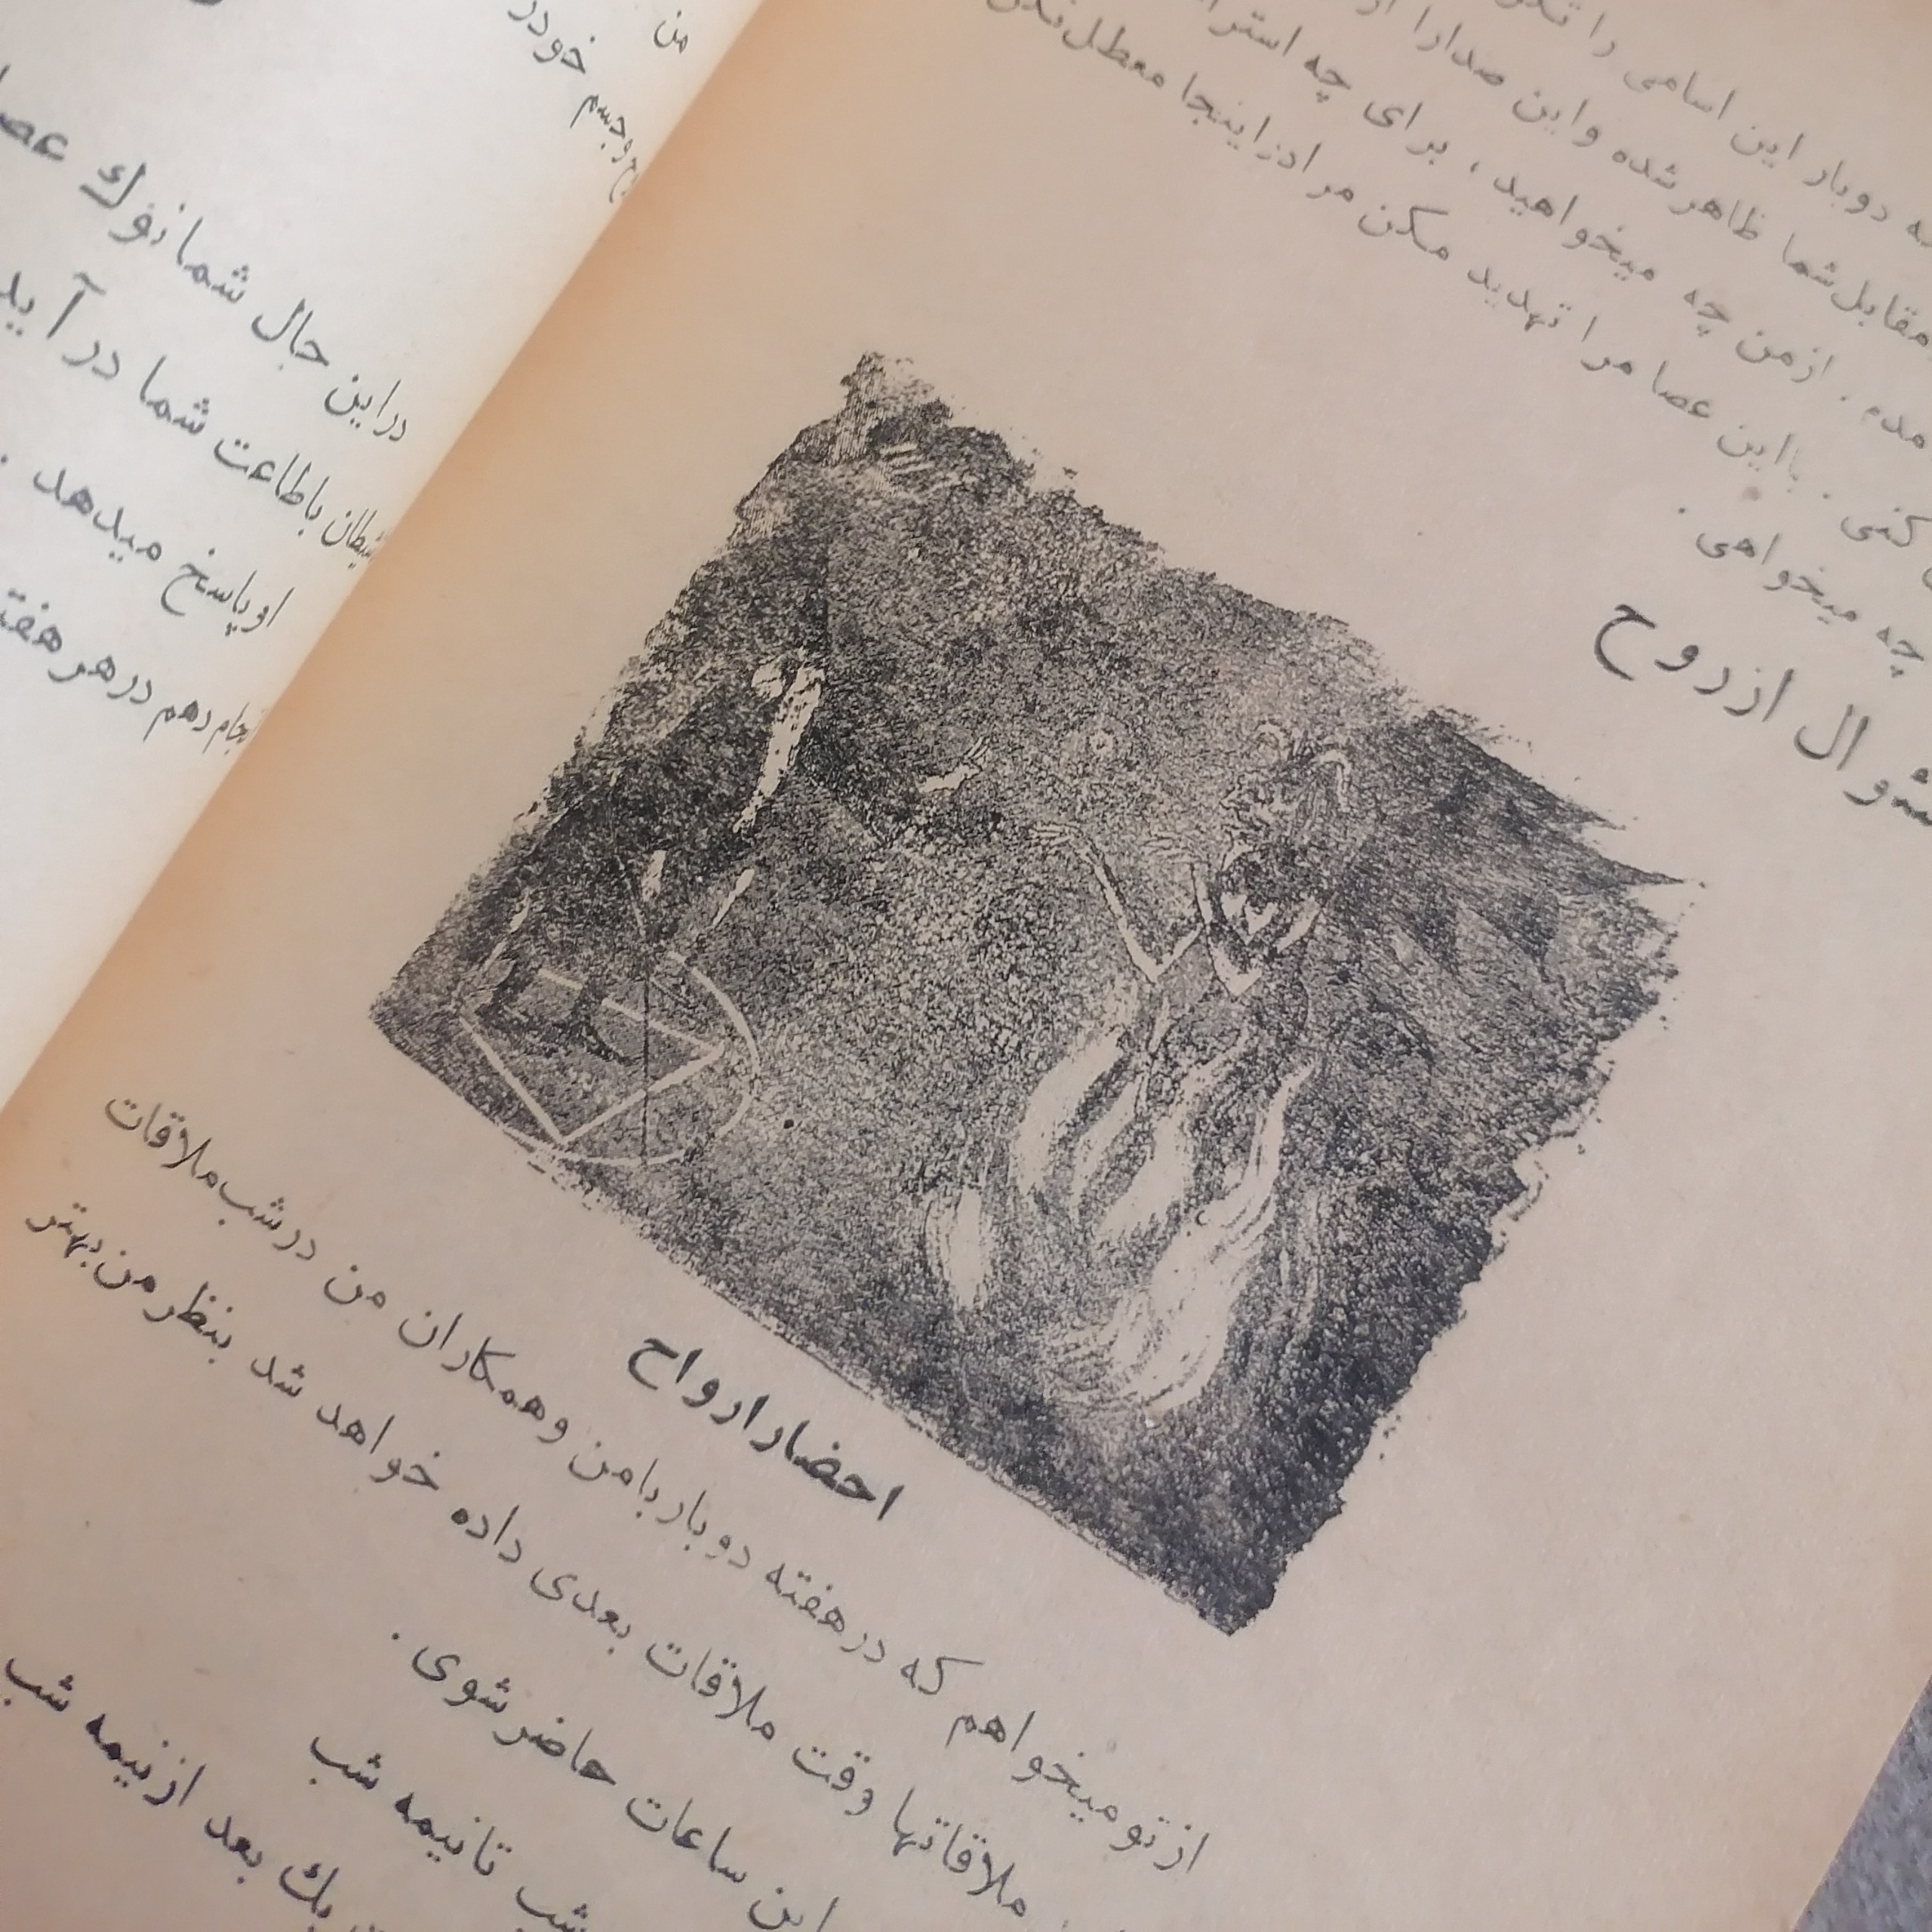 دوبار این اسامی را
مقابل شما ظاهر شده واین صدارا از
ازمن چه میخواهید ، برای چه
کنی . بااین عصا مرا تهدید مکن مرادراینجا معطل نکن
چه میخواهی .
سئوال ازروح
احضارارواح
ازتومیخواهم که درهفته دوباربامن وهمکاران من درشب ملاقات
ملاقاتها وقت ملاقات بعدی داده خواهد شد بنظرمن بهتر
این ساعات حاضرشوی .
شب تانیمه شب
یك بعد ازنیمه شب
من
وجسم خوددر
دراین حال شما نوك
شیطان باطاعت شما در آید
اوپاسخ میدهد .
انجام دهم درهرهفته